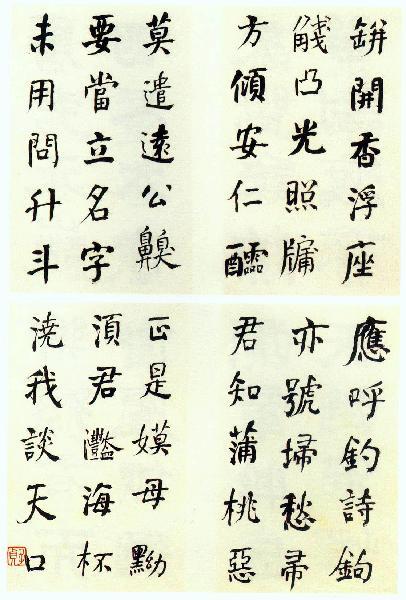 缾開香浮座
凸光照牖
方傾安仁醽
莫遣遠公齅
要當立名字
未用問升斗
應呼釣詩鉤
亦號掃愁帚
君知蒲桃惡
正是嫫母黝
須君灩海杯
澆我談天口